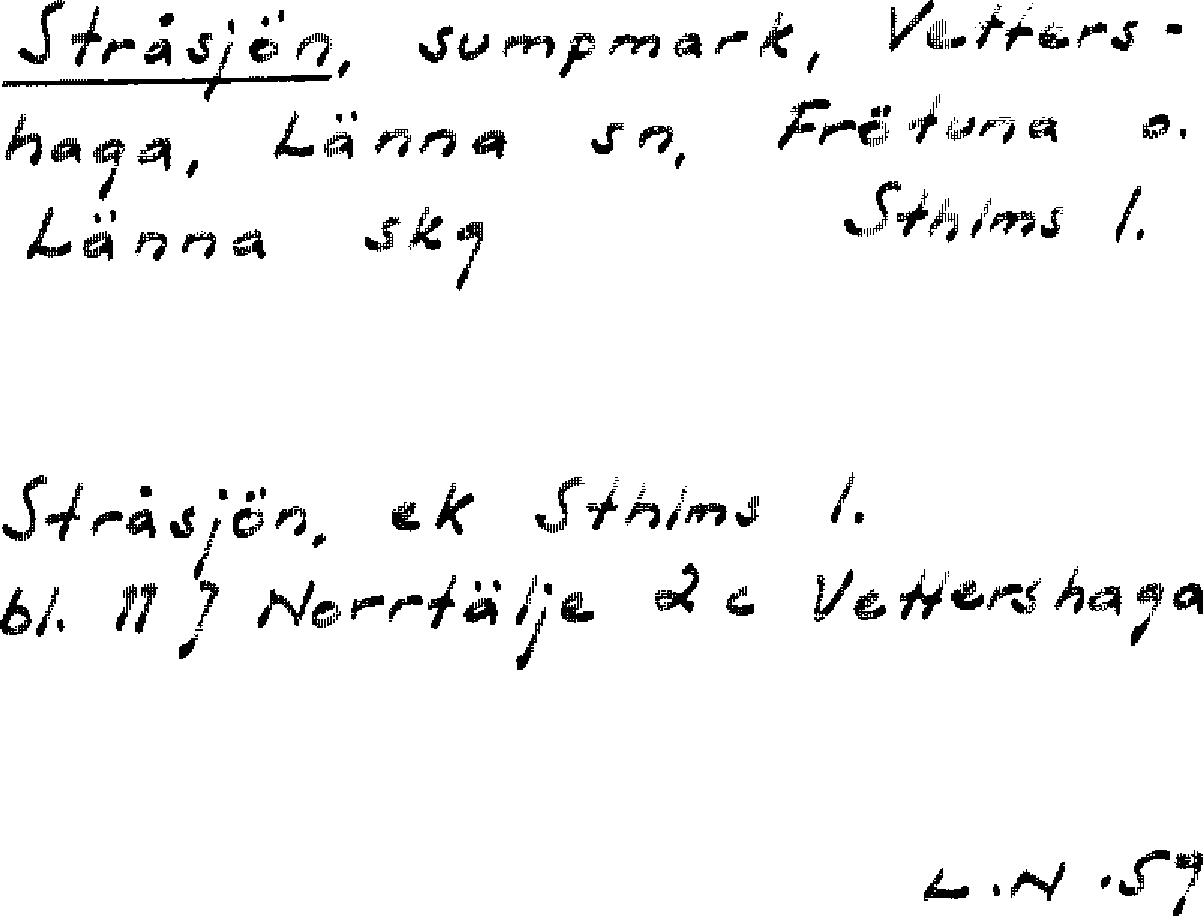 Stråsjön, sumpmark, Vetters-
haga, Länna sn, Frötuna o.
Länna skg Sthlms l.
Stråsjön, ek Sthlms l.
bl. 11 J Norrtälje 2 c Vettershaga
L.N. 59